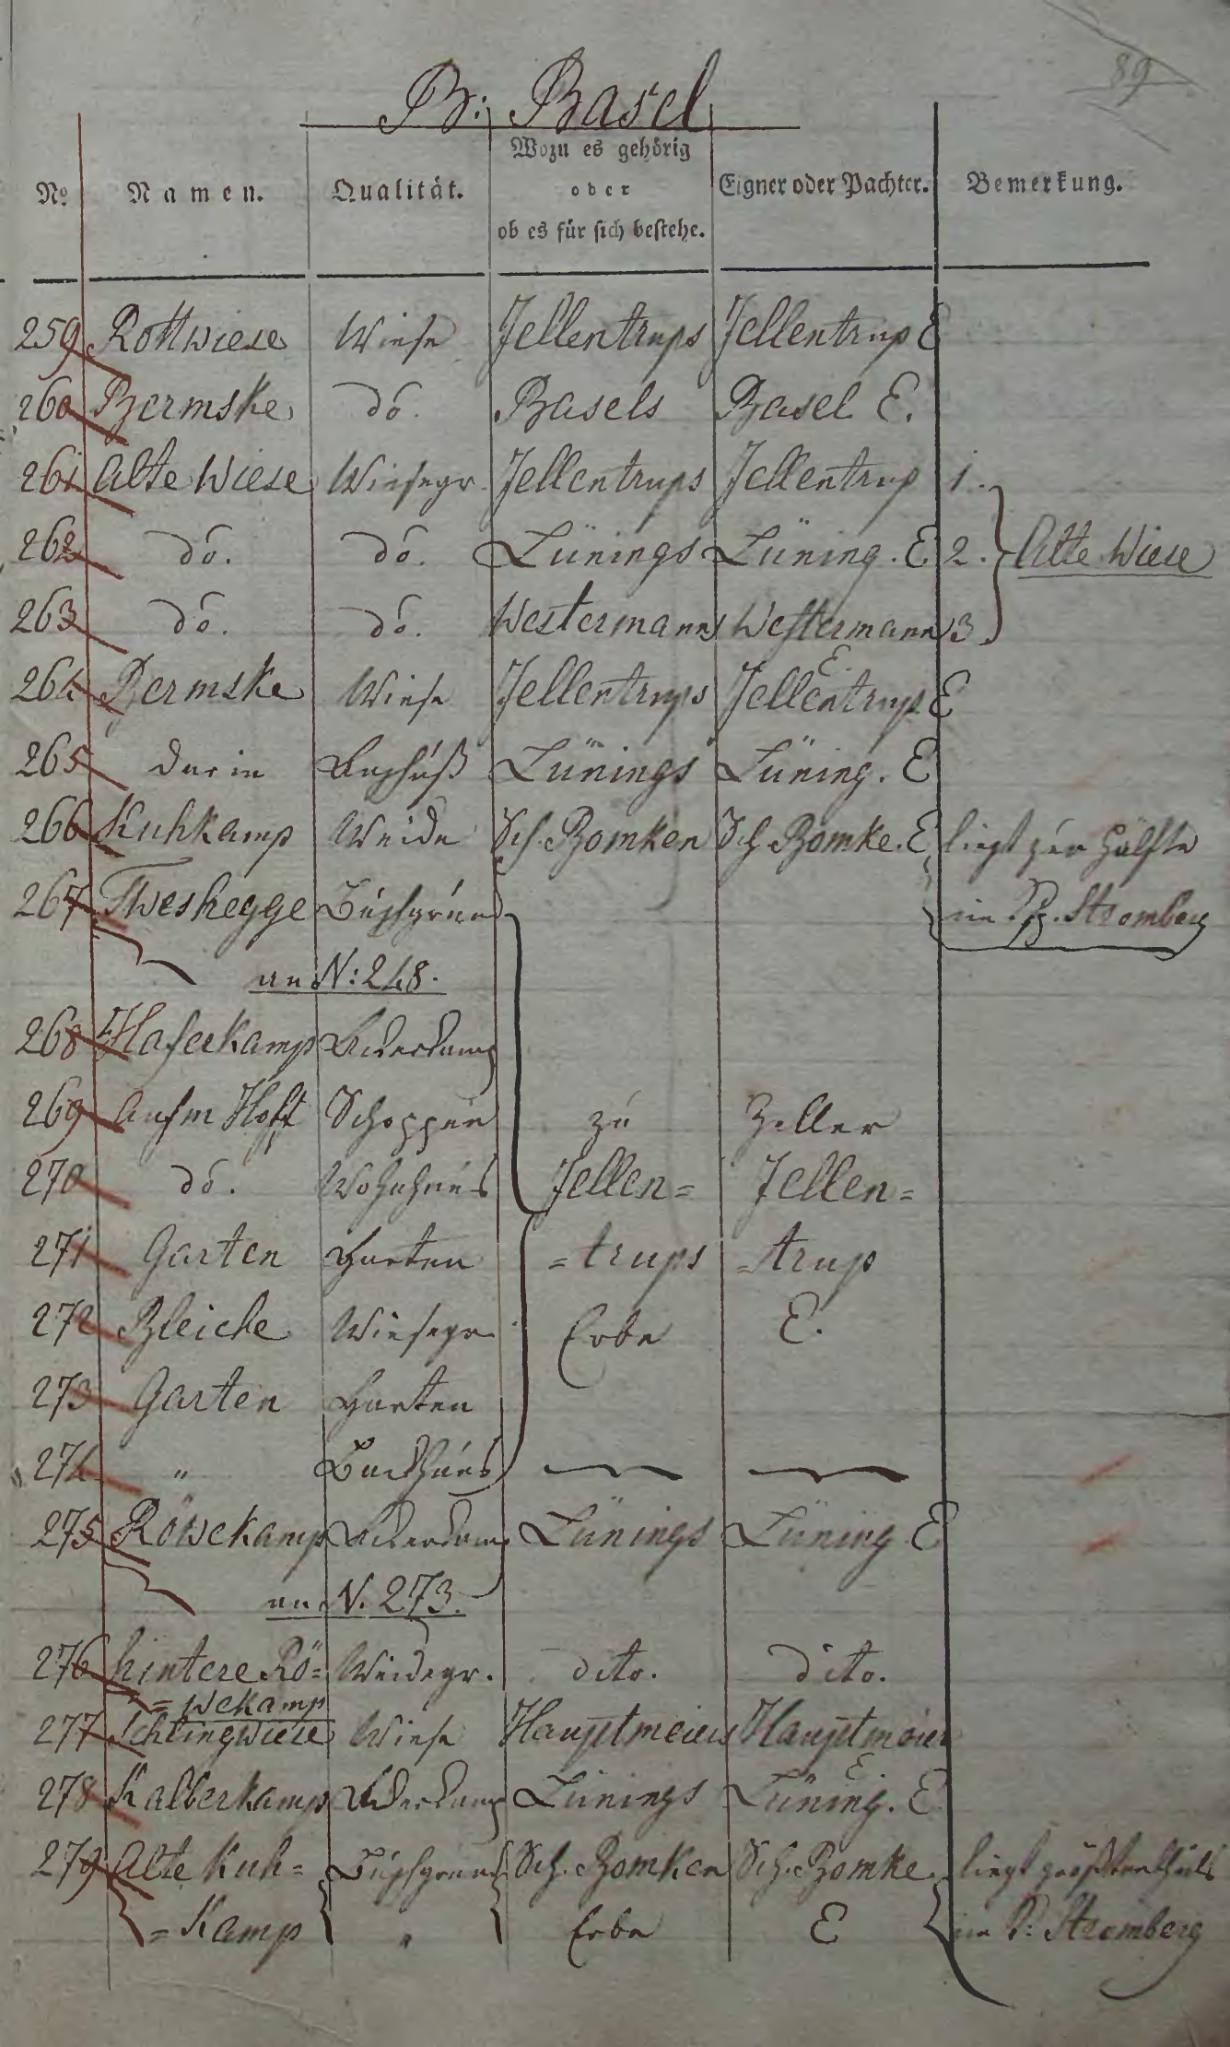 89
B: Basel
No Namen. Qualität. Wozu es gehörig oder ob es für sich bestehe. Eigner oder Pachter. Bemerkung.
259 Rottwiese Wiese Jellentrups Jellentrup E
260 Bermske do. Basels Basel E.
261 Alte Wiese Wiesegr. Jellentrups Jellentrup 1.
262 do. do. Lünings Lüning. E 2. Alte Wiese
263 do. do. Westermanns Westermann E. 3.
264 Bermske Wiese Jellentrups Jellentrup E
265 darin Lünings Lüning. E
266 Kuhkamp Weide Sch. Bomken Sch. Bomke. E liegt zur Hälfte
267 Tweshegge Buschgrund im Stromberg
an N: 248.
268 Haferkamp Ackerkamp
269 Aufm Hoff Schoppen zu Zeller
270 do. Wohnhaus Jellen= Jellen=
271 Garten Garten =trups =trup
272 Bleiche Wiesegr. Erbe E.
273 Garten Garten
274 " Backhaus
275 Röwekamp Ackerkamp Lünings Lüning E
an N. 273.
276 hintere Rö= Weidegr. dito. dito.
=wekamp
277 Schlingwiese Wiese Hauptmeiers Hauptmeier E
278 Kalberkamp Ackerkamp Lünings Lüning. E
279 Alte Kuh= Buschgrund Sch. Bomken Sch. Bomke. liegt größtentheils
=Kamp " Erbe E im P: Stromberg